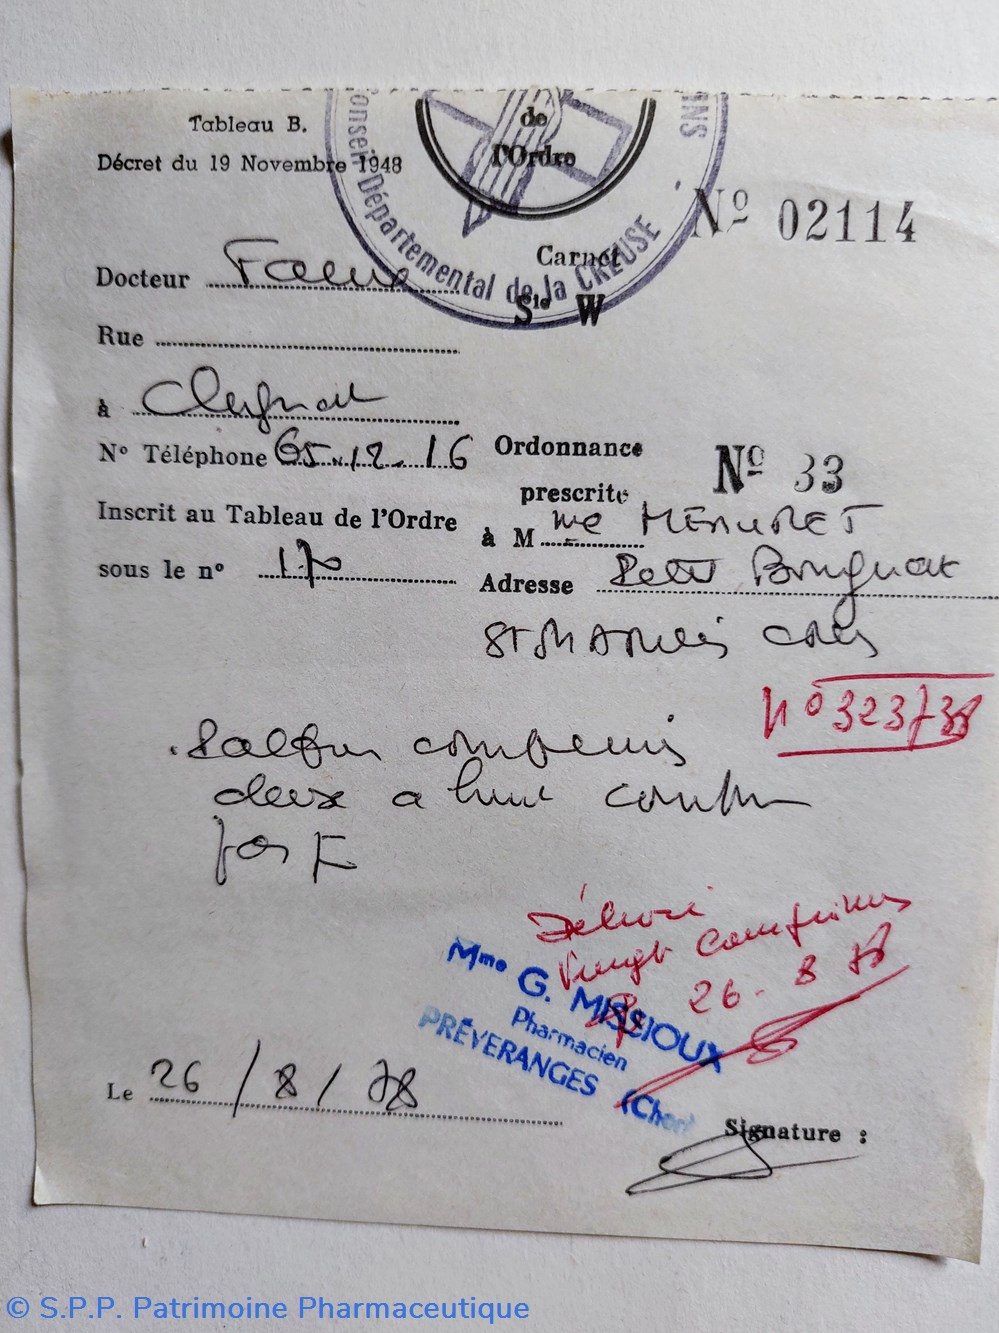 Tableau B.
Décret du 19 Novembre 1948
de
l'Ordre
Conseil Départemental de la CREUSE
Nº 02114
Carnet
Sie W
Docteur
Rue
à Clugnat
N° Téléphone 65.12.16
Inscrit au Tableau de l'Ordre
sous le n° 170
Ordonnance Nº 33
prescrite
à M me
Adresse Petit
St
n° 323738
Palfium comprimés
deux a huit
par
Délivré
vingt comprimés
26.8 78
Mme G. MISSIOUX
Pharmacien
PRÉVERANGES (Cher)
Le 26/8/78
Signature :
© S.P.P. Patrimoine Pharmaceutique